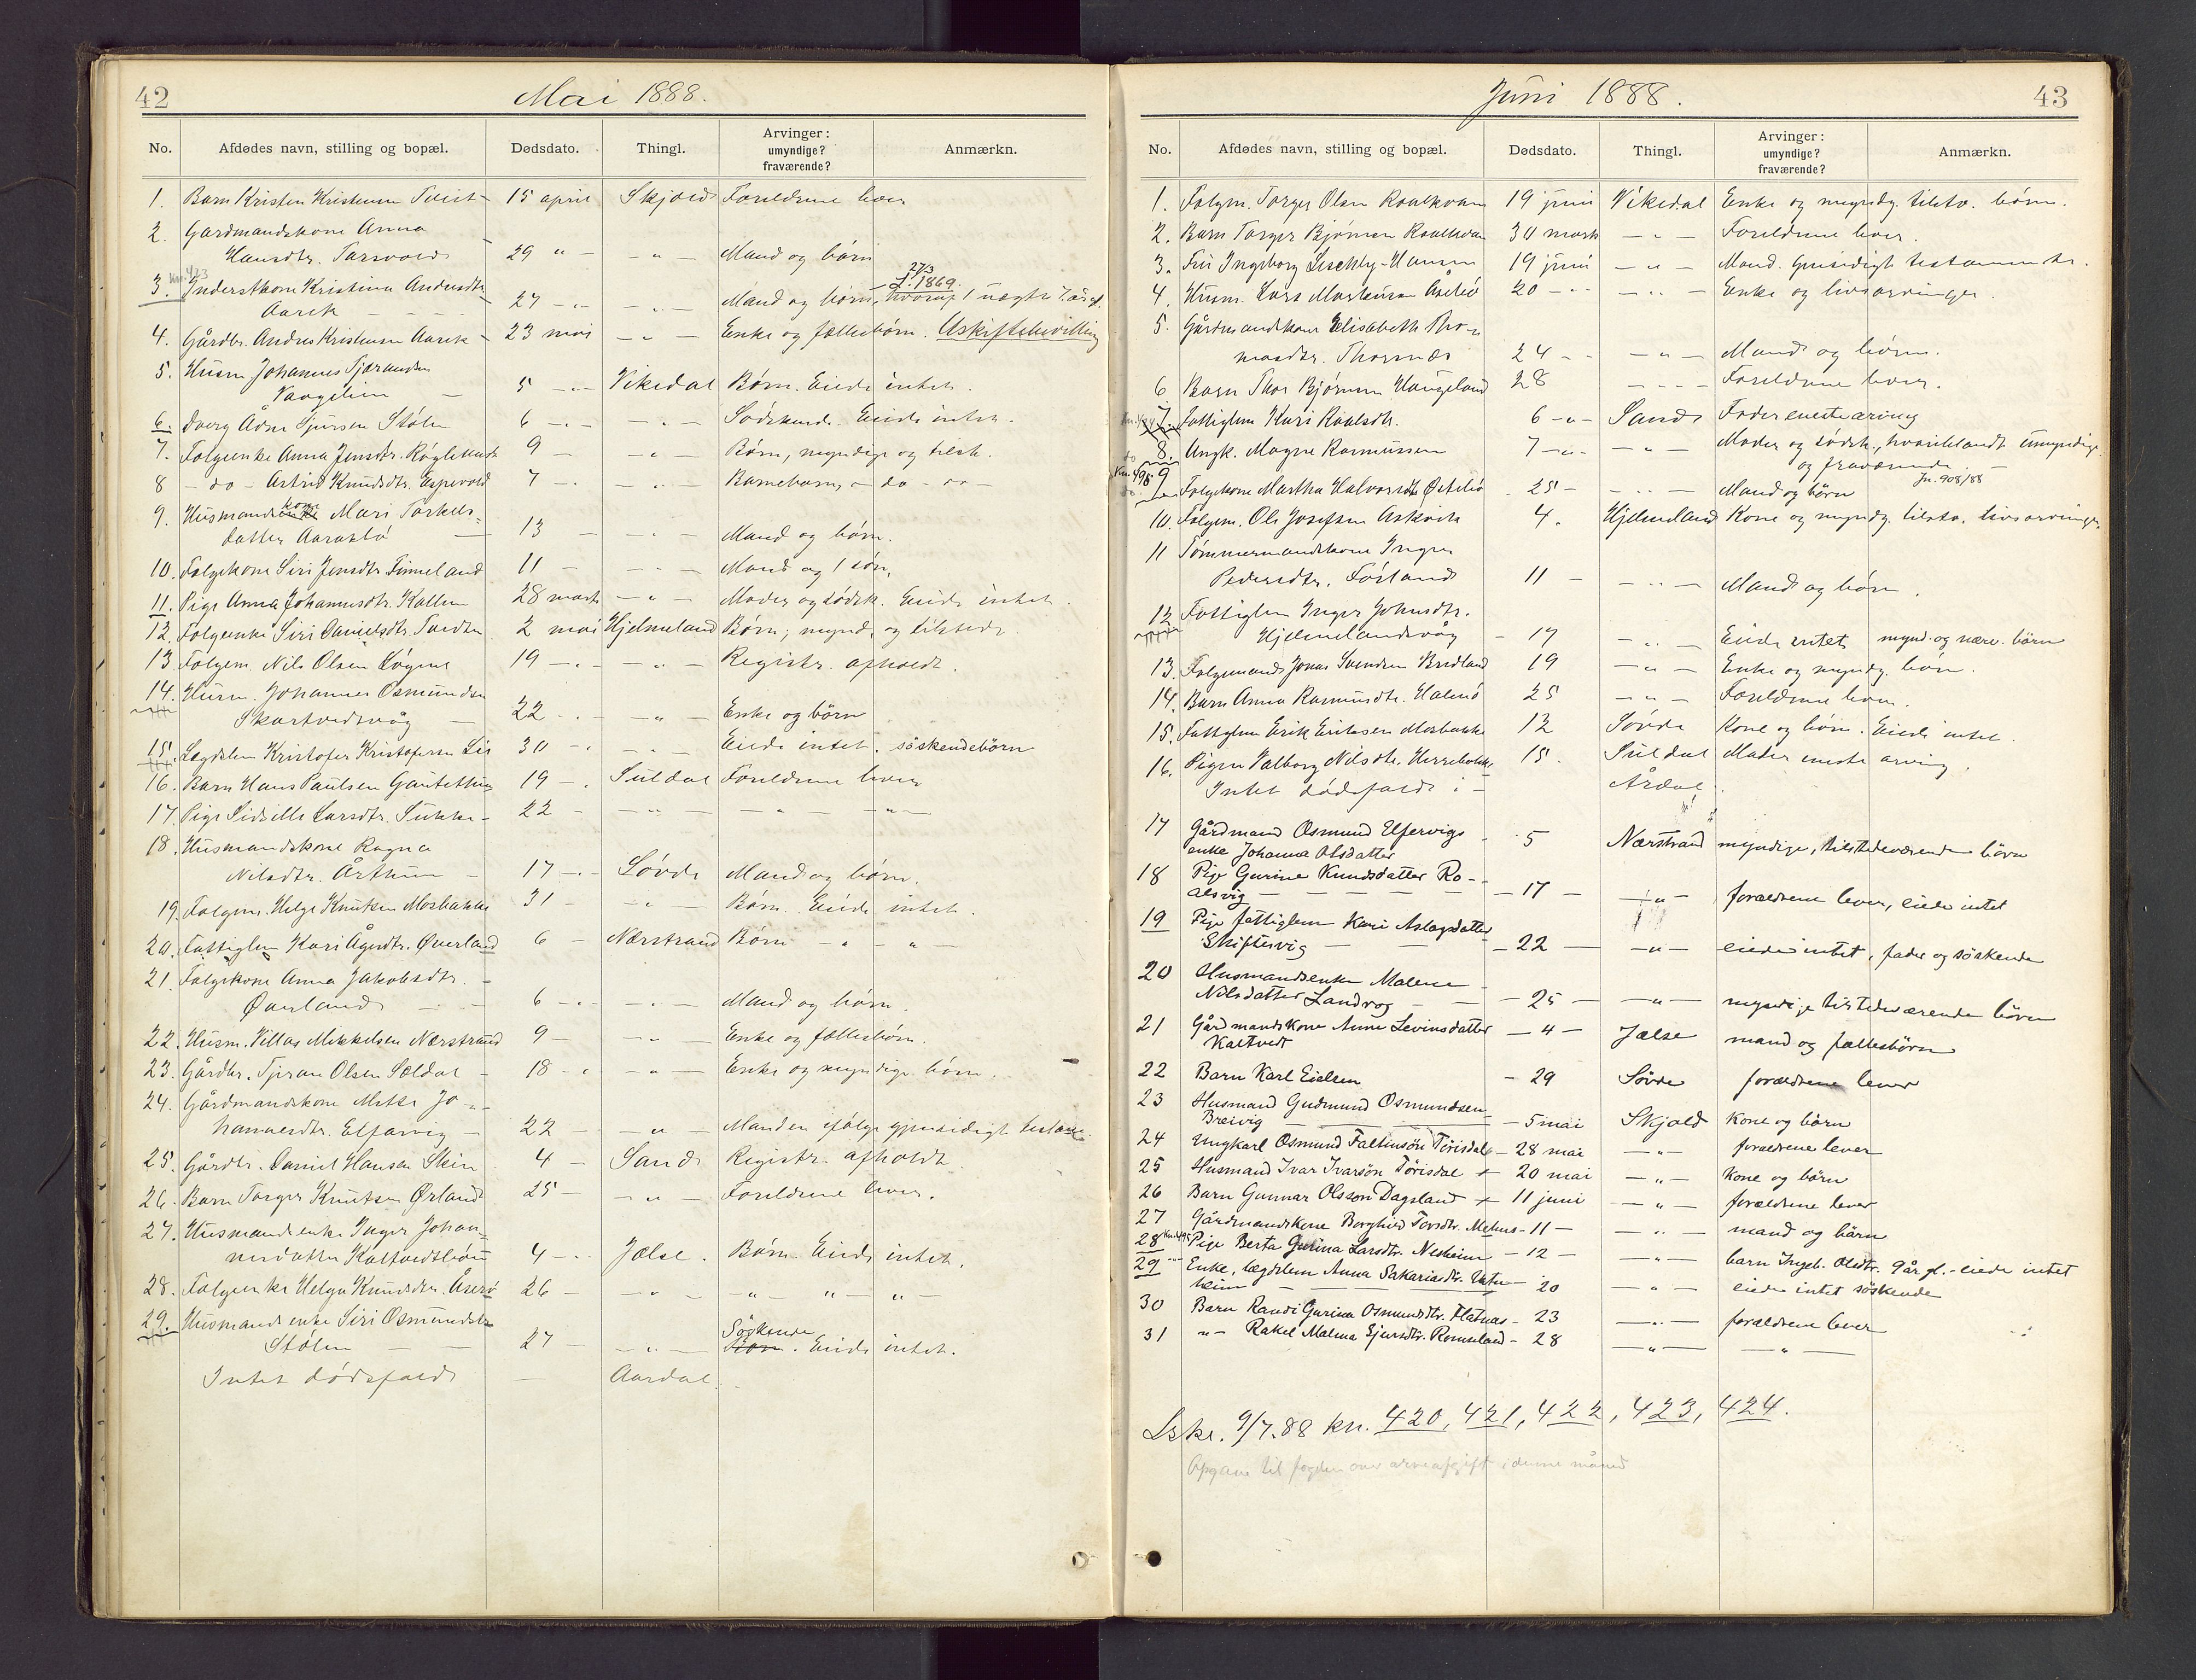 42
Mai 1888.
No. Afdødes navn, stilling og bopæl. Dødsdato. Thingl. Arvinger: umyndige? fraværende? Anmærkn.
1. Barn Kristen Kristensen Tveit 15 april Skjold Forældrene lever
2. Gaardmandskone Anna
Hansdtr. 29 " - - " - Mand og børn
3. Kristina Andersdtr.
27/3
f. 1869.
Aarek 27 - " - Mand og børn, hvoraf 1 uægte
4. Gårdbr. Andres Kristensen Aarek 23 mai - " - Enke og fællesbørn. Uskiftebevilling
5. Husm Johannes
5 - " - Vikedal Børn. Eiede intet.
6. Ådne Sjursen Stølen 6 - " - - " - Sødskende. Eiede intet.
7. Folgeenke Anna Jensdtr. 9 - " - Børn, myndige og tilst.
8 - do - Astrid Knudsdtr. Espevold 7 - - " - Barnebarn, - do - do -
9. Husmandskone Mari Torkels-
datter 13 - - " - Mand og børn.
10. Folgekone Siri Jensdtr. Finneland 11 - - " - Mand og 1 søn.
11. Pige Anna Johannesdtr. Kallen 28 marts - " - Moder og sødsk. Eiede intet.
12. Folgeenke Siri Danielsdtr. 2 mai Hjelmeland Børn, mynd. og tilstede.
13 Folgem. Nils Olsen 19 - " - - " - Registr. afholdt.
14. Husm. Johannes Osmundsen
Skartvedtvåg 22 - " - - " - Enke og børn
15. Lægdslem Kristofer Kristofersen Lie 30 - " - - " - Eiede intet. söskendebörn
16. Barn Hans Paulsen 19 - " Suldal Forældrene lever
17. Pige Sidselle Larsdtr. 22 - - " - - " - - " -
18. Husmandskone Ragna
Nilsdtr. Årthun 17 - " - Søvde Mand og børn.
19. Folgem. Helge Knutsen Mosbakke 31 - - " - Børn. Eiede intet.
20. Fattiglem Kari Ågesdtr. Øverland 6 - Nærstrand Børn - " - " -
21. Folgekone Anna Jakobsdtr.
Øverland 6 - " - " - Mand og børn.
22. Husm. Villas Mikkelsen Nærstrand 9 - - " - Enke og fællesbørn.
23. Gårdbr. Olsen Sældal 18 - " - " - Enke og myndige børn.
24. Gårdmandskone Mette Jo-
hannesdtr. Elfarvig 22 - " - Manden ifølge gjensidigt testam.
25. Gårdbr. Daniel Hansen 4 - Sand Registr. afholdt
26. Barn Torger Knutsen Ørland 25 - - " - Forældrene lever.
27. Husmandsenke Inger Johan-
nesdatter 4 - " Jælse. Børn. Eiede intet.
28. Folgeenke Helga Knudsdtr. 26 - - " - - " - " - " -
29. Husmandsenke Siri Osmundsdtr.
Söskende
Stølen 27 - - " - Børn. Eiede intet.
Intet dødsfald - Aardal.
Juni 1888.
43
No. Afdødes navn, stilling og bopæl. Dødsdato. Thingl. Arvinger: umyndige? fraværende? Anmærkn.
1. Folgm. Torger Olsen Roalkvam 19 juni Vikedal Enke og myndg. tilstv. børn.
2. Barn Torger Bjørnsen Roalkvam 30 marts - " - Forældrene lever.
3. Fru Ingeborg 19 juni - " - Mand. Gjensidigt testamente.
4. Husm. Lars Mortensen 20 - " - - " - Enke og livsarvinger.
5. Gårdmandskone Elisabeth Tho-
masdtr. Thornæs 24 - " - " - Mand og børn.
6. Barn Thor Bjørnsen Haugeland 28 - " - Forældrene lever.
7. Fattiglem Kari Roalsdtr. 6 - " - Sand Fader eneste arving
8. Ungk. Magne Rasmussen 7 - " - - " - Moder og sødsk., hvoriblandt umyndige
og fraværende.
Jn. 908/88
9 Folgekone Martha Halvorsdtr. 25 - - " - Mand og børn
10. Folgem. Ole Josefsen Askvik 4. Hjelmeland Kone og myndg. tilstv. livsarvinger
11 Tømmermandskone Inger
Pedersdtr. Førland 11 - - " - Mand og børn.
12 Fattiglem Inger Johnsdtr.
Hjelmelandsvåg - 17 - " - Eiede intet mynd. og nærv. børn
13. Folgemand Jonas Svendsen 19 - " - Enke og myndg. børn.
14. Barn Anna Rasmusdtr. Halnö 25 - " - Forældrene lever.
15. Fattiglem Erik Eriksen Mosbakke 12 Søvde Kone og børn. Eiede intet.
16. Pigen Valborg Nilsdtr. 15. Suldal Moder eneste arving.
Intet dødsfald i - Årdal
17 Gårdmand Osmund Elfervigs
enke Johanna Olsdatter 5 Nærstrand myndige, tilstedeværende børn
18 Pige Gurine Knudsdatter Ro-
alsvig - 17 - - " - forældrene lever, eiede intet
19 Pige fattiglem Kari Aslagsdatter
Skiftesvig - 22 - - " - eiede intet, fader og söskende
20 Husmandsenke Malene
Nilsdatter Landvog - 25 - - " - myndige tilstedeværende börn
21 Gårdmandskone Anne Levinsdatter
Kaltvedt - 4 - Jælse mand og fællesbörn
22 Barn Karl Eielsen - 29 Søvde forældrene lever
23 Husmand Gudmund Osmundsen
Breivig - 5 mai Skjold Kone og børn
24 Ungkarl Osmund Faltinsön Törisdal - 28 mai - " - forældrene lever
25 Husmand Ivar Ivarsön Törisdal - 20 mai - " - Kone og börn
26 Barn Gunnar Olsson Dagsland - 11 juni - " - forældrene lever
27 Gårdmandskone Borghild Torsdtr. Mehus - 11 - - " - mand og børn
28 Pige Berta Gurina Larsdtr. Nesheim - 12 - - " - barn Ingeb. Olsdtr. 9 år gl. - eiede intet
29 Enke, lægdslem Anna Sakariasdtr. Vatne-
heim - 20 - " - eiede intet söskende
30 Barn Randi Gurina Osmundsdtr. Flatnas - 23 - " - forældrene lever
31 " - Rakel Malena Sjursdtr. Romseland - 28 - " - - " -
Lskr. 9/7.88 kn. 420, 421, 422, 423, 424.
Opgave til fogden over arveafgift i denne måned